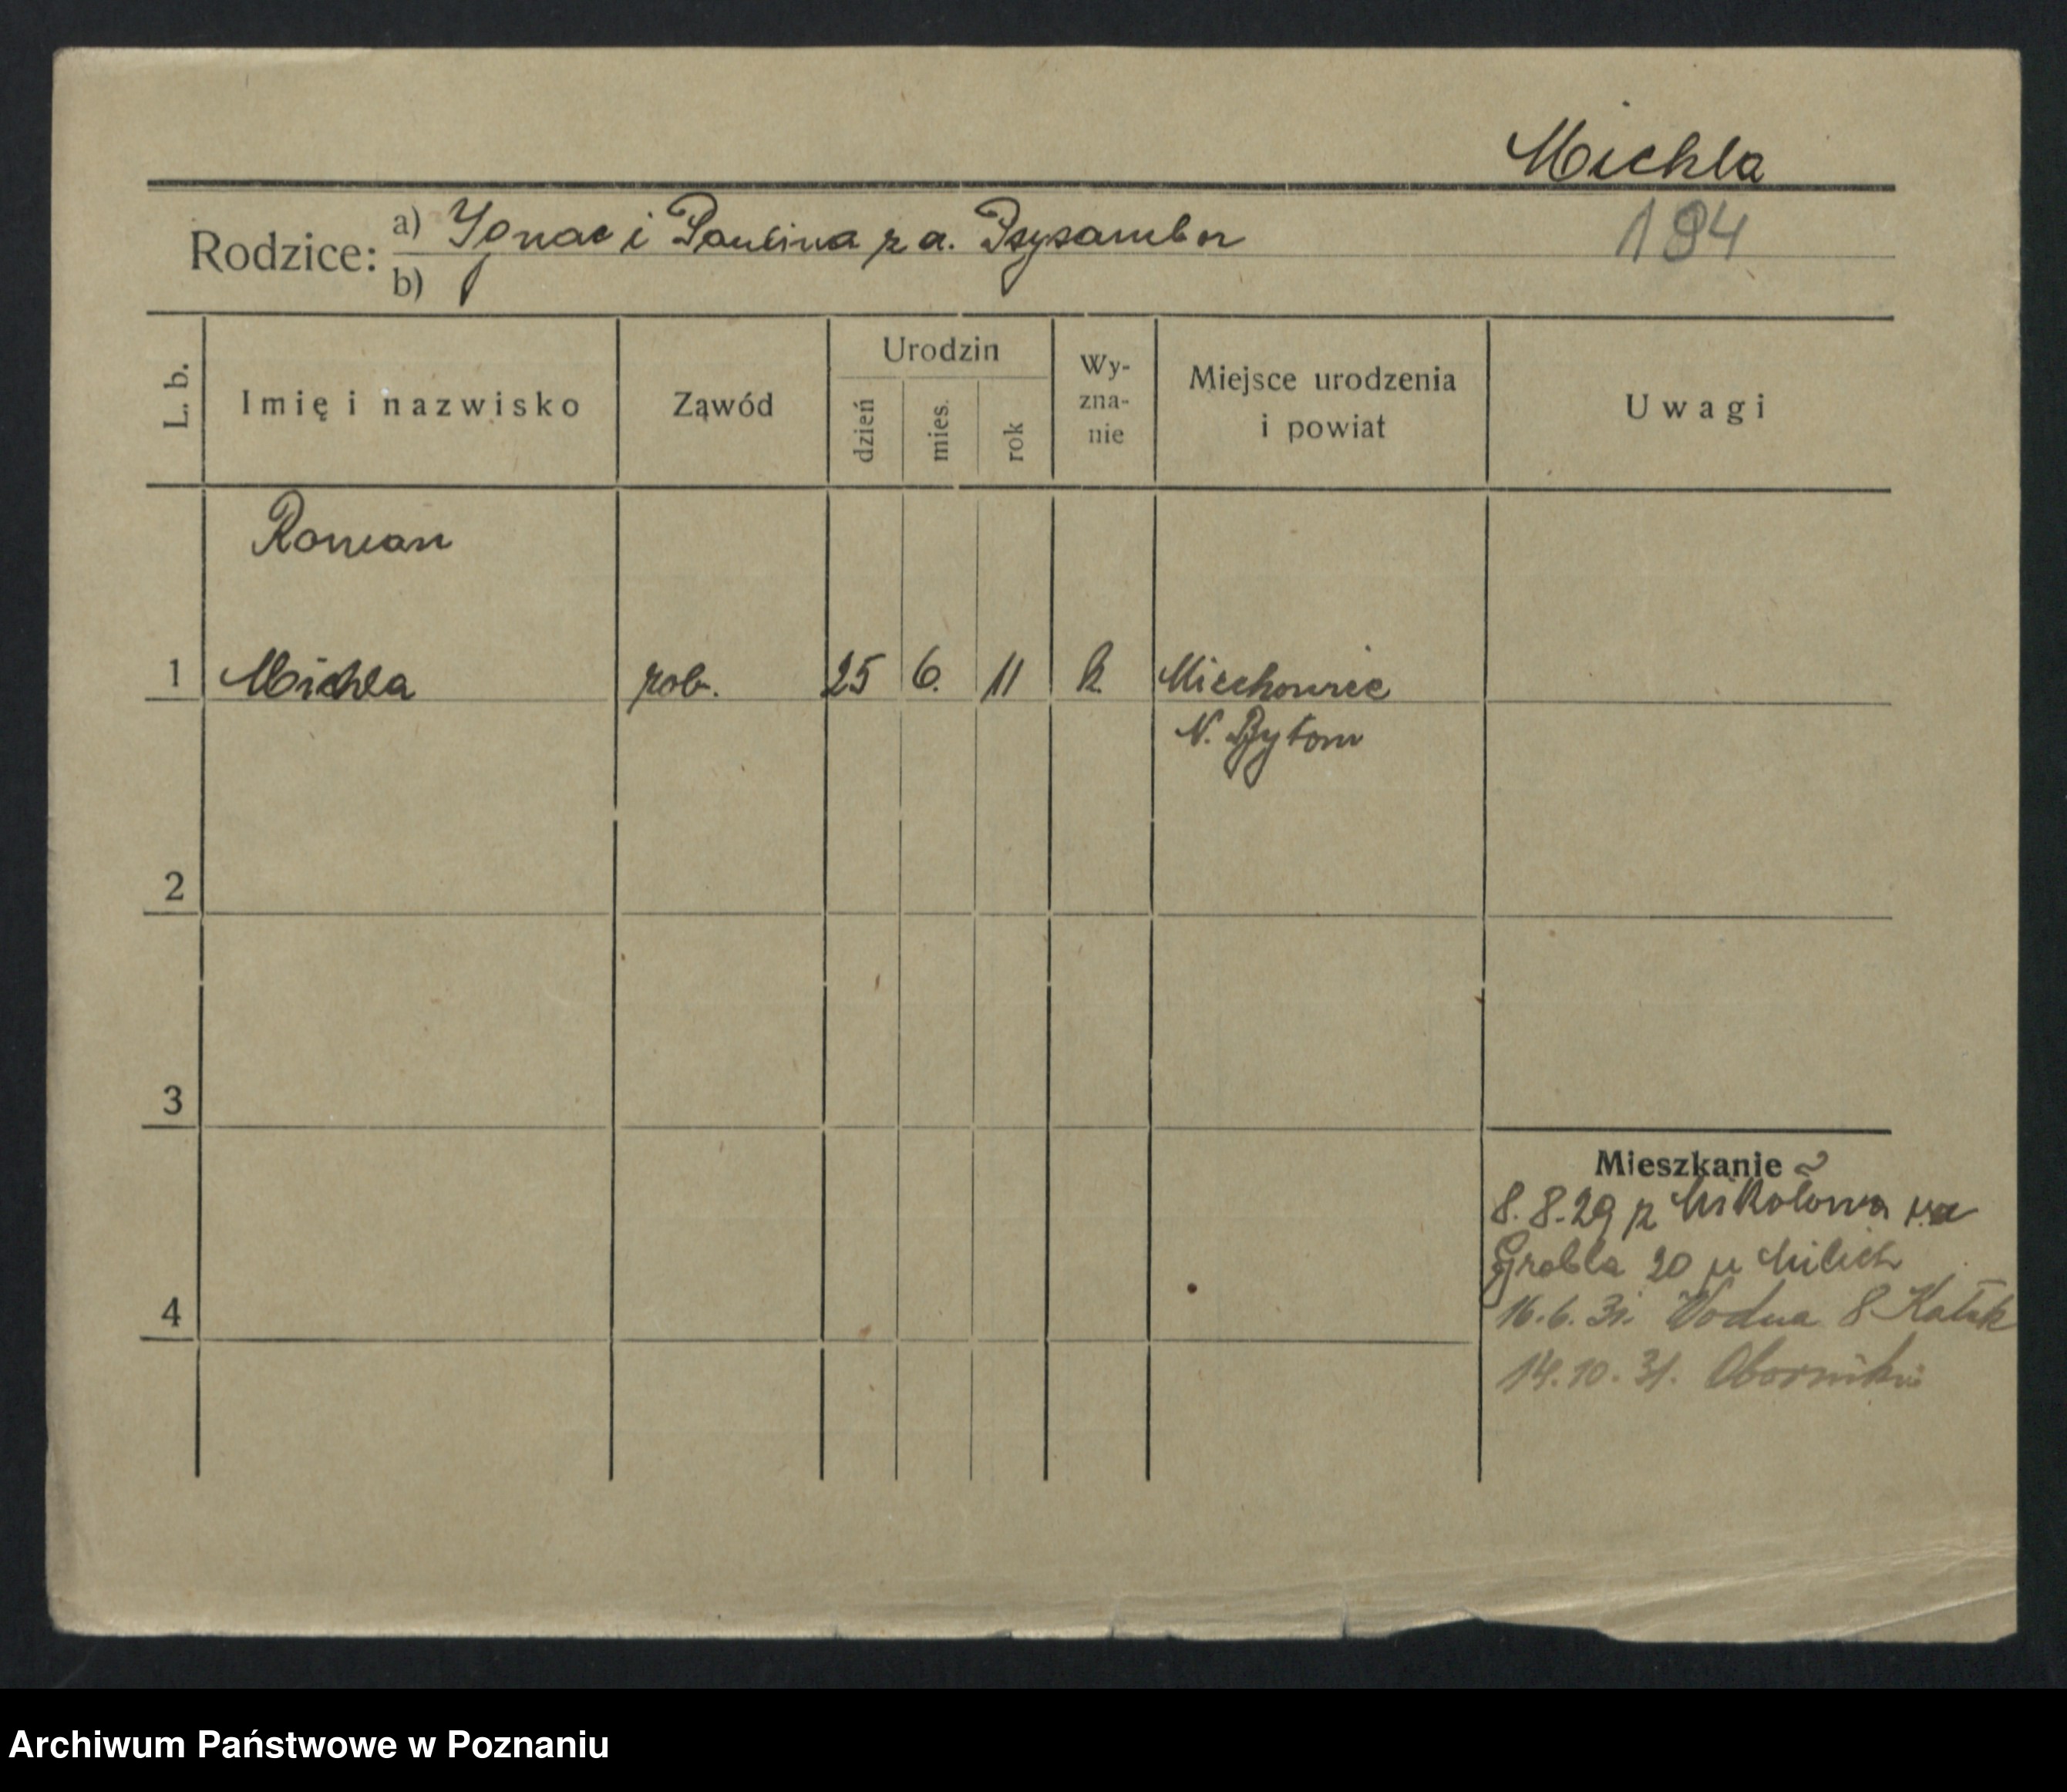 Michla
194
Rodzice: a) Ignac i Paulina z d. Psysambor
b)
L. b.
Imię i nazwisko
Ząwód
Urodzin
dzień
mies.
rok
Wy-
zna-
nie
Miejsce urodzenia
i powiat
Uwagi
Roman
1 Michla rob. 25 6. 11 k. Miechowice
N. Bytom
2
3
4
Mieszkanie
8.8.29 z Mikołowa na
Grobla 20 u Milich
16.6.31. Wodna 8
14.10.31. Oborniki
Archiwum Państwowe w Poznaniu